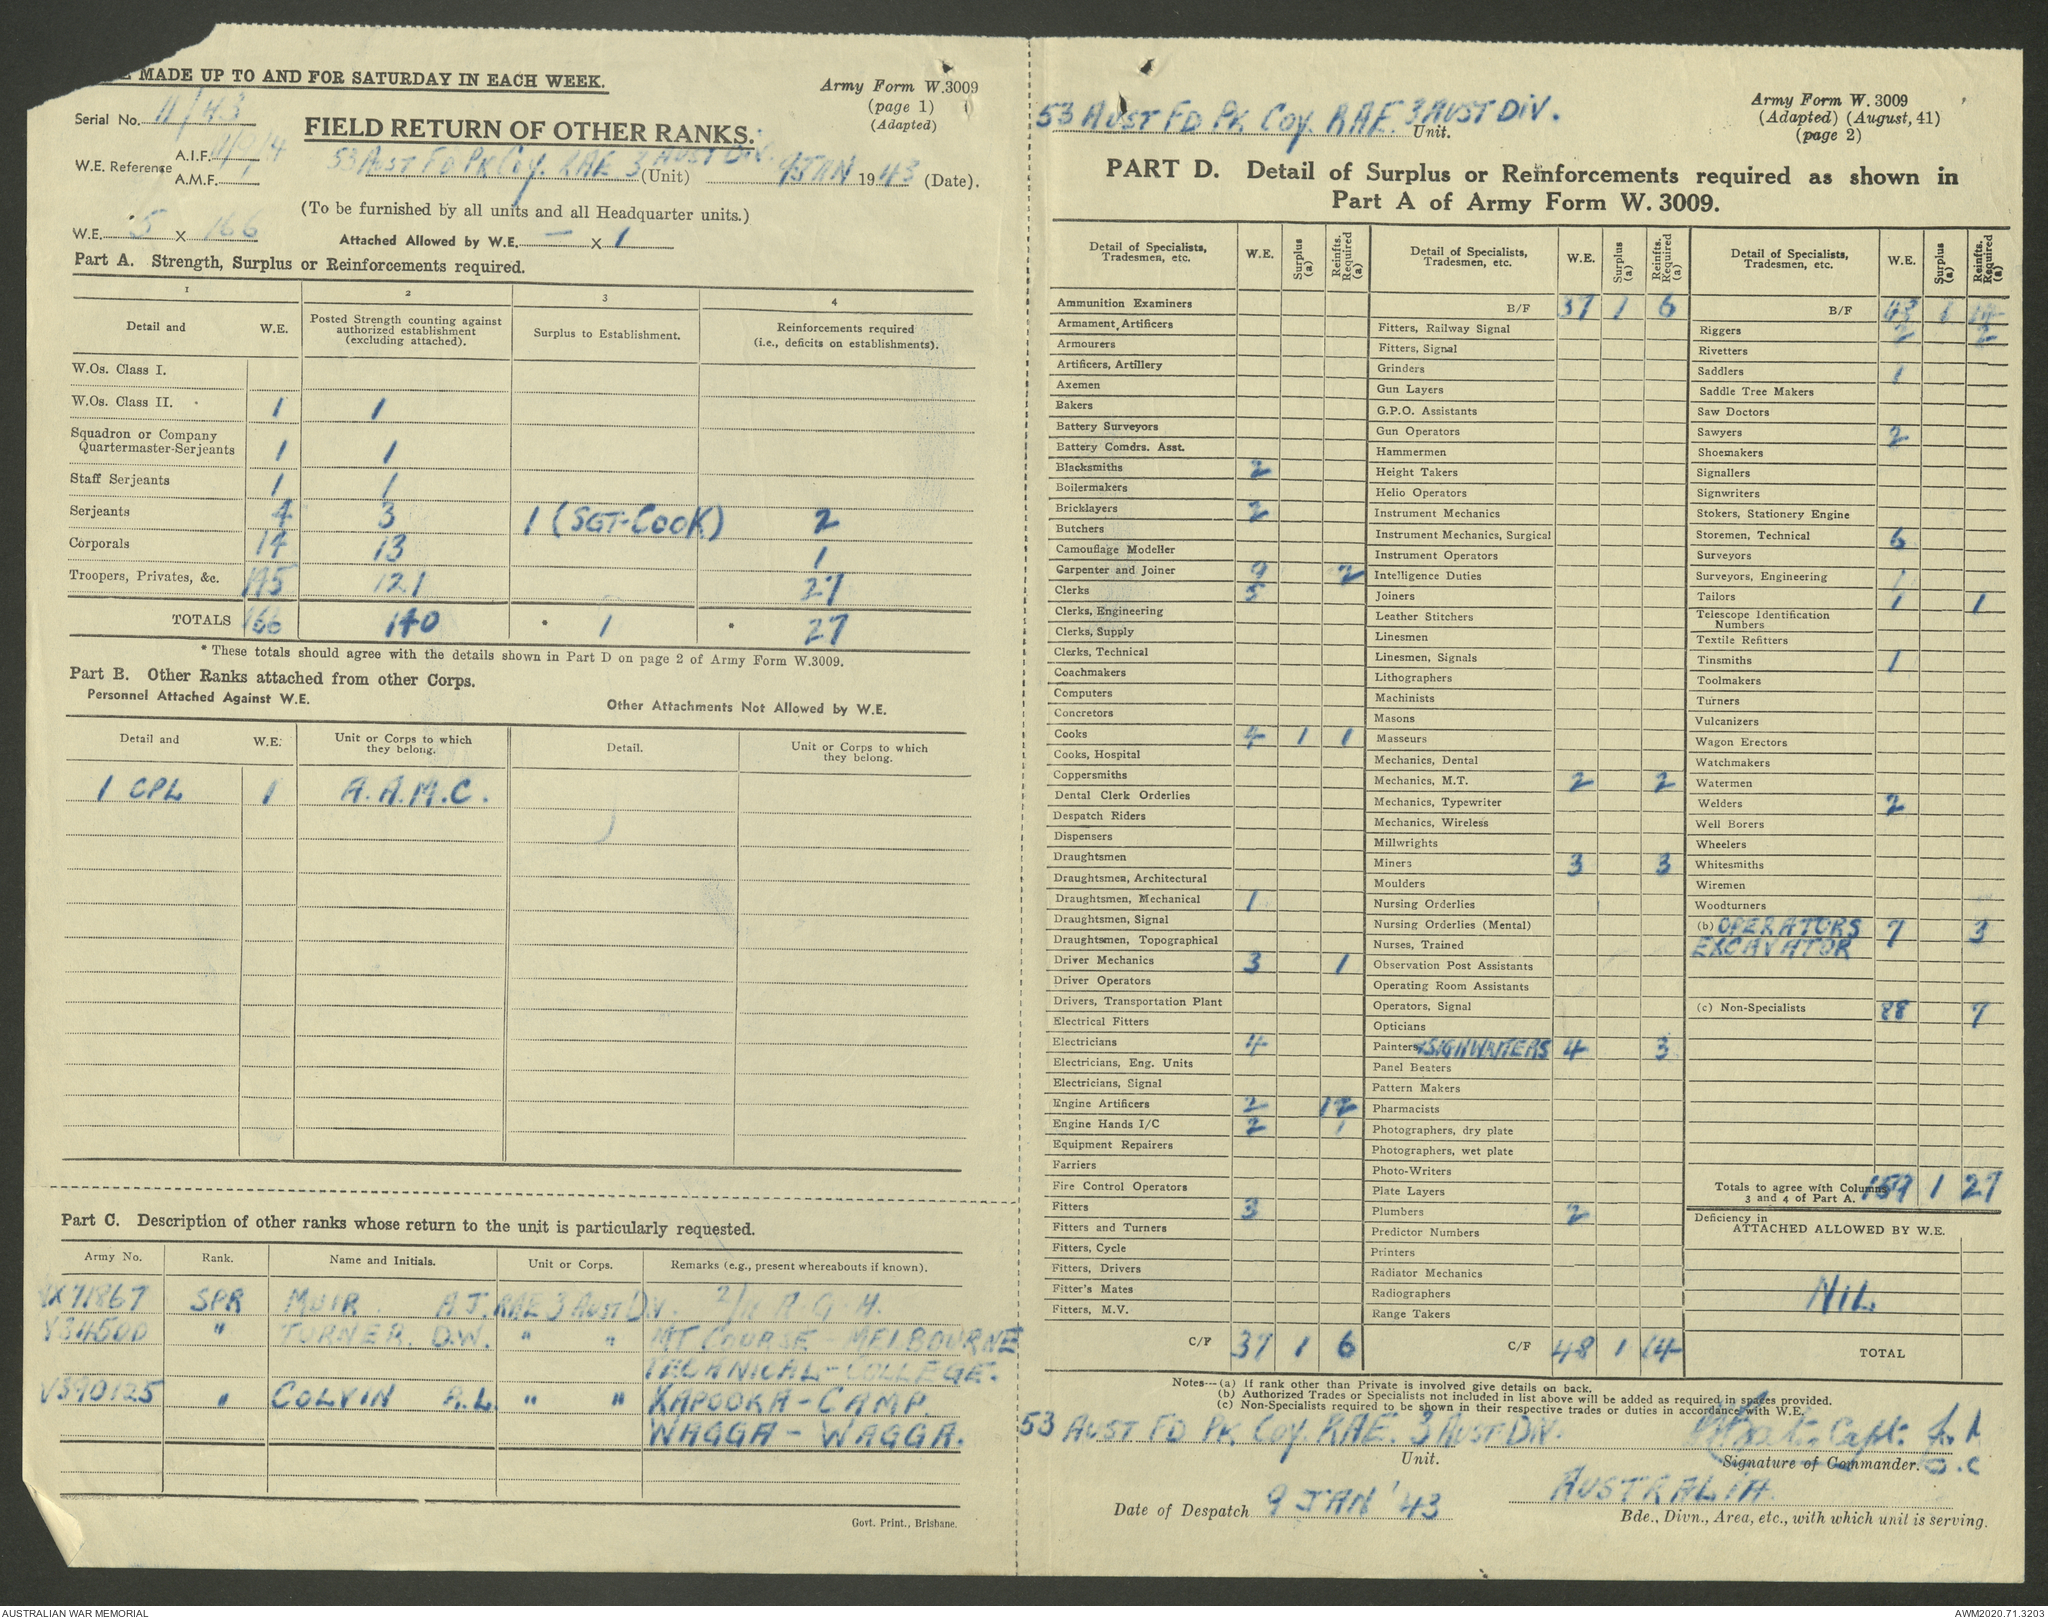 E MADE UP TO AND FOR SATURDAY IN EACH WEEK.
Army Form W.3009
(page 1)
(Adapted)
Serial No. 11/43
FIELD RETURN OF OTHER RANKS.
W.E. Reference A.I.F.
A.M.F.
53 AUST FD PK COY. RAE 3 AUST DIV. (Unit) 9 JAN 1943 (Date).
(To be furnished by all units and all Headquarter units.)
W.E. 5 X 166 Attached Allowed by W.E. — X 1
Part A. Strength, Surplus or Reinforcements required.
1 2 3 4
Detail and W.E. Posted Strength counting against authorized establishment (excluding attached). Surplus to Establishment. Reinforcements required (i.e., deficits on establishments).
W.Os. Class I.
W.Os. Class II. 1 1
Squadron or Company
Quartermaster-Serjeants 1 1
Staff Serjeants 1 1
Serjeants 4 3 1 (SGT-COOK) 2
Corporals 14 13 1
Troopers, Privates, &c. 145 121 27
TOTALS 166 140 * 1 * 27
* These totals should agree with the details shown in Part D on page 2 of Army Form W.3009.
Part B. Other Ranks attached from other Corps.
Personnel Attached Against W.E. Other Attachments Not Allowed by W.E.
Detail and W.E. Unit or Corps to which they belong. Detail. Unit or Corps to which they belong.
1 CPL 1 A.A.M.C.
Part C. Description of other ranks whose return to the unit is particularly requested.
Army No. Rank. Name and Initials. Unit or Corps. Remarks (e.g., present whereabouts if known).
VX71867 SPR MUIR. A.J. RAE 3 AUST DIV. 2/11 A.G.H.
V34500 " TURNER. D.W. " " MT COURSE - MELBOURNE
TECHNICAL - COLLEGE.
V390125 " COLVIN A.L. " " KAPOOKA - CAMP.
WAGGA - WAGGA.
Govt. Print., Brisbane.
53 AUST FD PK COY. RAE. 3 AUST DIV.
Unit.
Army Form W. 3009
(Adapted) (August, 41)
(page 2)
PART D. Detail of Surplus or Reinforcements required as shown in
Part A of Army Form W. 3009.
Detail of Specialists, Tradesmen, etc. W.E. Surplus (a) Reinfts. Required (a)
Ammunition Examiners
Armament Artificers
Armourers
Artificers, Artillery
Axemen
Bakers
Battery Surveyors
Battery Comdrs. Asst.
Blacksmiths 2
Boilermakers
Bricklayers 2
Butchers
Camouflage Modeller
Carpenter and Joiner 9 2
Clerks 5
Clerks, Engineering
Clerks, Supply
Clerks, Technical
Coachmakers
Computers
Concretors
Cooks 4 1 1
Cooks, Hospital
Coppersmiths
Dental Clerk Orderlies
Despatch Riders
Dispensers
Draughtsmen
Draughtsmen, Architectural
Draughtsmen, Mechanical 1
Draughtsmen, Signal
Draughtsmen, Topographical
Driver Mechanics 3 1
Driver Operators
Drivers, Transportation Plant
Electrical Fitters
Electricians 4
Electricians, Eng. Units
Electricians, Signal
Engine Artificers 2
Engine Hands I/C 2 1
Equipment Repairers
Farriers
Fire Control Operators
Fitters 3
Fitters and Turners
Fitters, Cycle
Fitters, Drivers
Fitter's Mates
Fitters, M.V.
C/F 37 1 6
Detail of Specialists, Tradesmen, etc. W.E. Surplus (a) Reinfts. Required (a)
B/F 37 1 6
Fitters, Railway Signal
Fitters, Signal
Grinders
Gun Layers
G.P.O. Assistants
Gun Operators
Hammermen
Height Takers
Helio Operators
Instrument Mechanics
Instrument Mechanics, Surgical
Instrument Operators
Intelligence Duties
Joiners
Leather Stitchers
Linesmen
Linesmen, Signals
Lithographers
Machinists
Masons
Masseurs
Mechanics, Dental
Mechanics, M.T. 2 2
Mechanics, Typewriter
Mechanics, Wireless
Millwrights
Miners 3 3
Moulders
Nursing Orderlies
Nursing Orderlies (Mental)
Nurses, Trained
Observation Post Assistants
Operating Room Assistants
Operators, Signal
Opticians
Painters & SIGNWRITERS 4 3
Panel Beaters
Pattern Makers
Pharmacists
Photographers, dry plate
Photographers, wet plate
Photo-Writers
Plate Layers
Plumbers 2
Predictor Numbers
Printers
Radiator Mechanics
Radiographers
Range Takers
C/F 48 1 14
Detail of Specialists, Tradesmen, etc. W.E. Surplus (a) Reinfts. Required (a)
B/F 48 1 14
Riggers 2 2
Rivetters
Saddlers 1
Saddle Tree Makers
Saw Doctors
Sawyers 2
Shoemakers
Signallers
Signwriters
Stokers, Stationery Engine
Storemen, Technical 6
Surveyors
Surveyors, Engineering 1
Tailors 1 1
Telescope Identification
Numbers
Textile Refitters
Tinsmiths 1
Toolmakers
Turners
Vulcanizers
Wagon Erectors
Watchmakers
Watermen
Welders 2
Well Borers
Wheelers
Whitesmiths
Wiremen
Woodturners
(b) OPERATORS 7 3
EXCAVATOR
(c) Non-Specialists 88 7
Totals to agree with Columns
3 and 4 of Part A. 159 1 27
Deficiency in
ATTACHED ALLOWED BY W.E.
NIL
TOTAL
Notes—(a) If rank other than Private is involved give details on back.
(b) Authorized Trades or Specialists not included in list above will be added as required in spaces provided.
(c) Non-Specialists required to be shown in their respective trades or duties in accordance with W.E.
53 AUST FD PK COY. RAE. 3 AUST DIV. Capt. for M
Unit. Signature of Commander. O.C
Date of Despatch 9 JAN '43 AUSTRALIA.
Bde., Divn., Area, etc., with which unit is serving.
AUSTRALIAN WAR MEMORIAL
AWM2020.71.3203